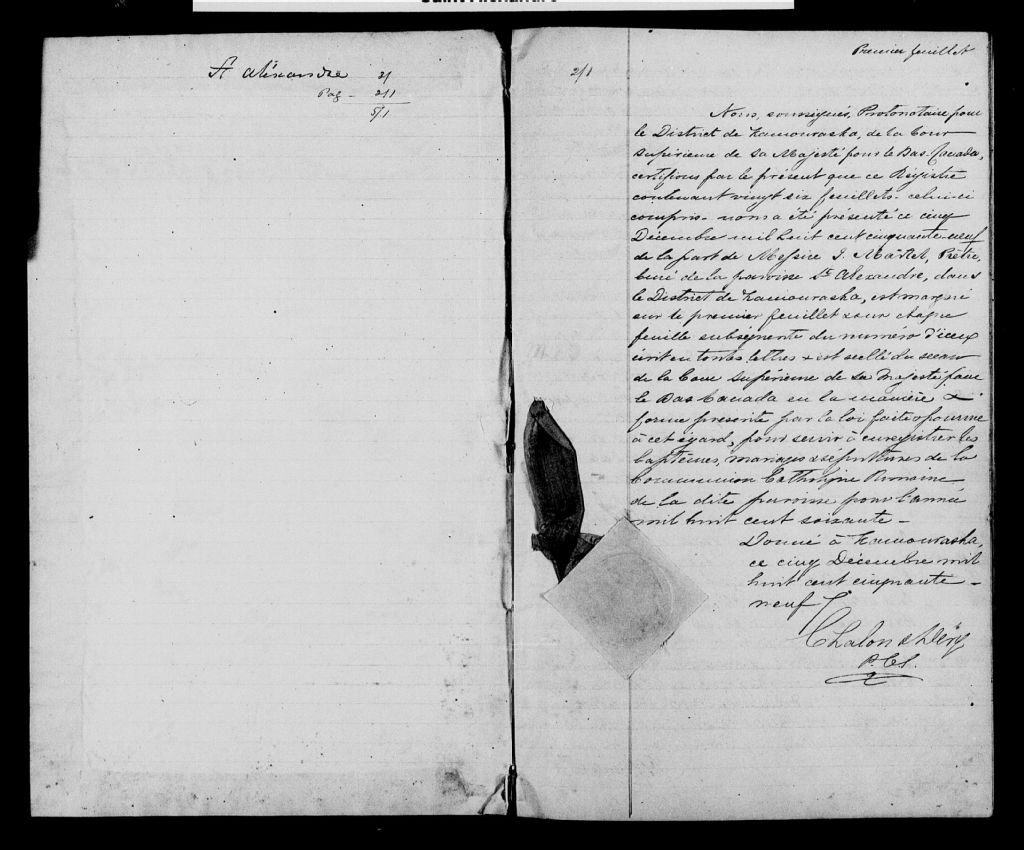 St Alexandre 2/
Pag - 2/1
5/1
2/1
Premier feuillet
Nous, soussignés, Protonotaire pour
le District de Kamouraska, de la Cour
Supérieure de Sa Majesté pour le Bas-Canada,
certifions par le présent que ce Régistre
contenant vingt six feuillets - celui-ci
compris - nous a été présenté ce cinq
Décembre mil huit cent cinquante-neuf
de la part de Messire J. Martel, Prêtre,
Curé de la paroisse St Alexandre, dans
le District de Kamouraska, est marqué
sur le premier feuillet & sur chaque
feuille subséquente du numéro d'iceux
écrit en toutes lettres & est scellé du sceau
de la Cour Supérieure de Sa Majesté pour
le Bas Canada en la manière &
forme prescrite par la loi faite & pourvue
à cet égard, pour servir à enregistrer les
baptêmes, mariages & sépultures de la
Communion Catholique Romaine
de la dite paroisse pour l'année
mil huit cent soixante -
Donné à Kamouraska,
ce cinq Décembre mil
huit cent cinquante -
neuf
Chalou & Déry
P.C.S.